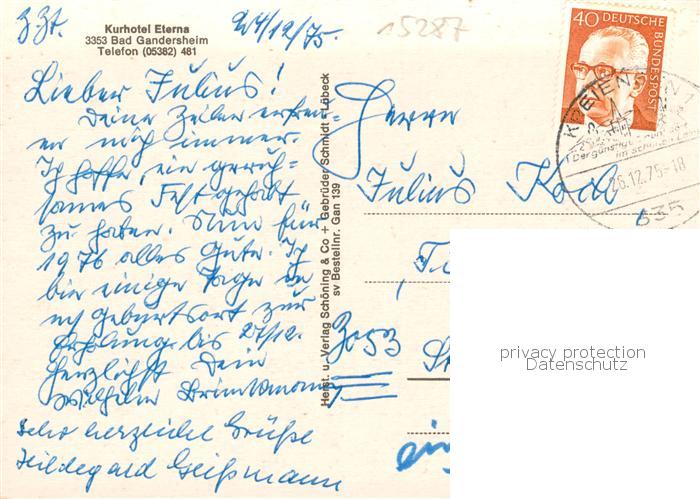 z.Zt.
Kurhotel Eterna
3353 Bad Gandersheim
Telefon (05382) 481
24/12/75.
15287
Lieber Julius!
Deine Zeilen erfreu=
en mich immer.
Ich hoffe, ein geruh=
sames Fest gehabt
zu haben. Nun für
1976 alles Gute. Ich
bin einige Tage in
Geburtsort zur
Erholung bis 27/12.
Herzlichst Dein
Wilhelm Brinkmann
Sehr herzliche Grüße
Hildegard Geißmann
Herst. u. Verlag Schöning & Co + Gebrüder Schmidt - Lübeck
sv Bestellnr. Gan 139
Herrn
Julius
3053
40 DEUTSCHE BUNDESPOST
KREIENSEN
26.12.75-18
335
privacy protection
Datenschutz